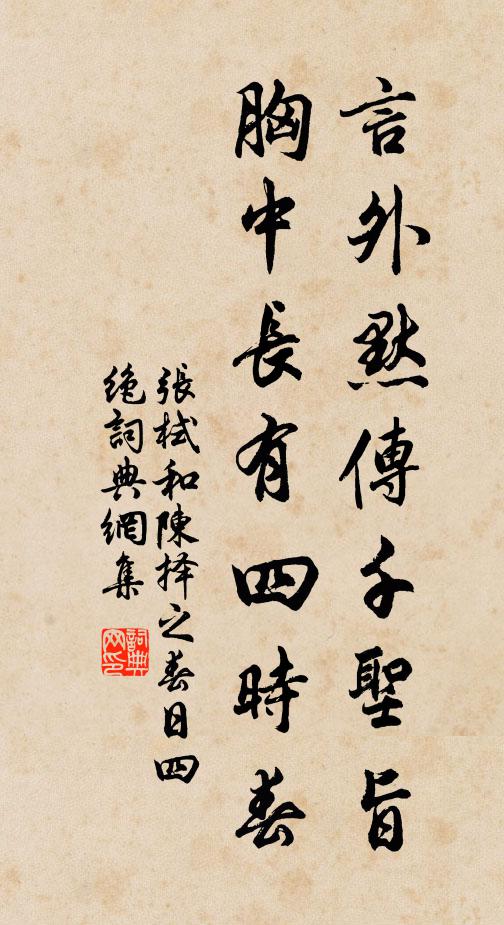 言外默傳千聖旨
胸中長有四時春
張栻和陳择之春日四
絶詞典網集
詞典
网印